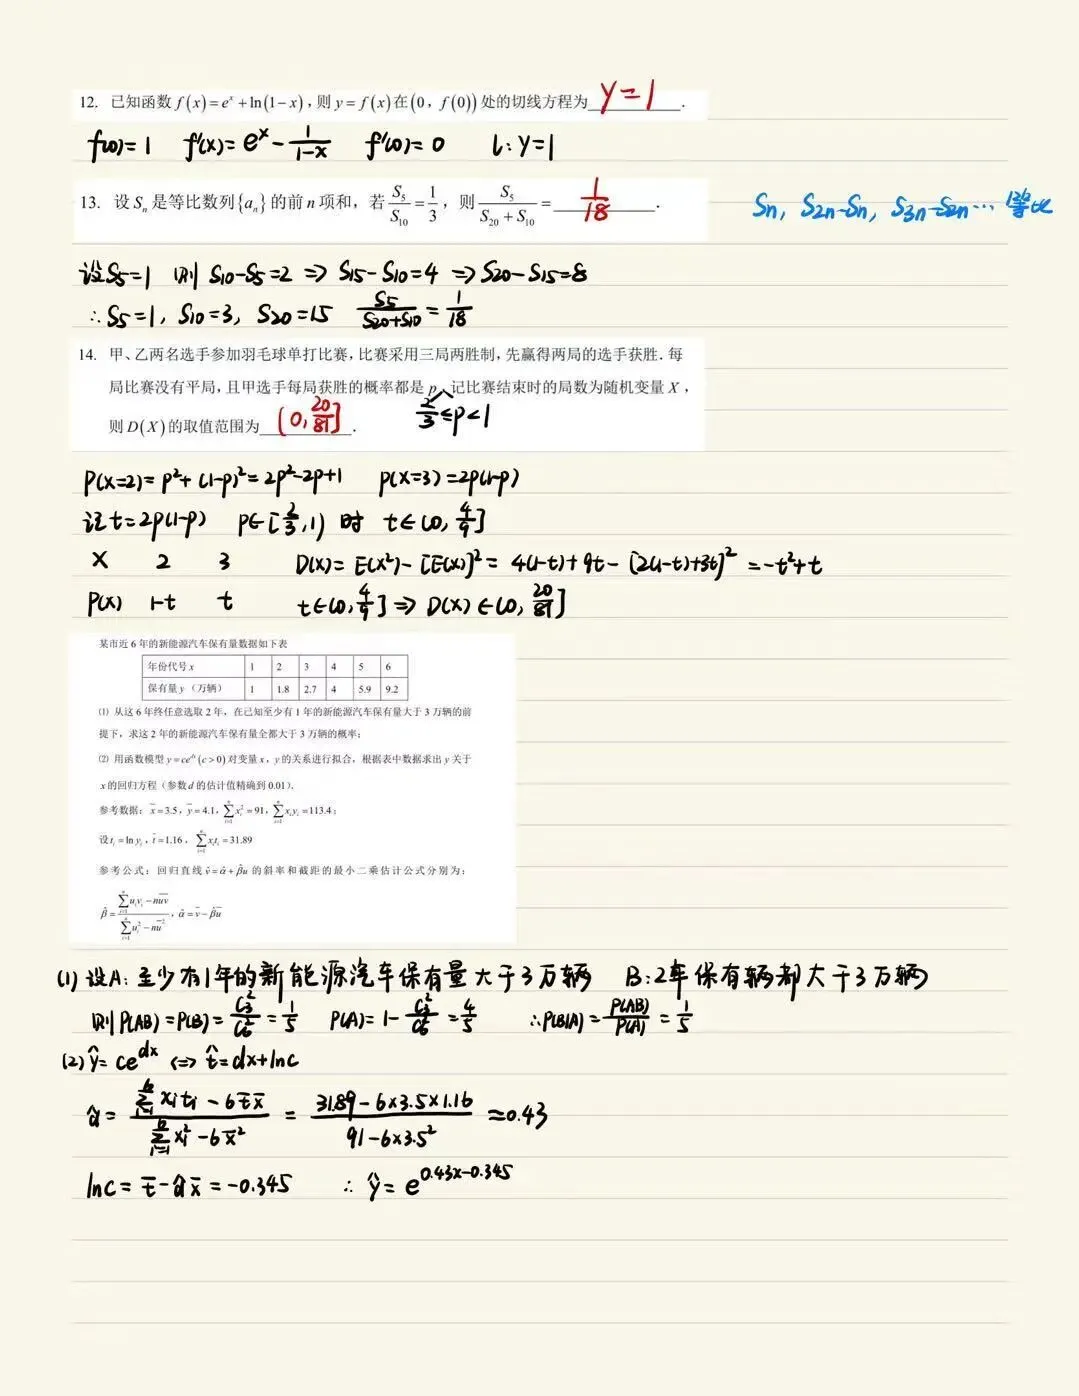 12. 已知函数 f(x)=e^x+ln(1-x),则 y=f(x)在(0,f(0))处的切线方程为 y=1 .
f(0)=1 f'(x)=e^x-1/(1-x) f'(0)=0 l:y=1
13. 设 S_n 是等比数列{a_n}的前 n 项和,若 S_5/S_10=1/3,则 S_5/(S_20+S_10)= 1/18 .
S_n, S_2n-S_n, S_3n-S_2n… 等比
设S_5=1 则 S_10-S_5=2 ⇒ S_15-S_10=4 ⇒ S_20-S_15=8
∴S_5=1, S_10=3, S_20=15 S_5/(S_20+S_10)=1/18
14. 甲、乙两名选手参加羽毛球单打比赛,比赛采用三局两胜制,先赢得两局的选手获胜.每
局比赛没有平局,且甲选手每局获胜的概率都是 p,记比赛结束时的局数为随机变量 X,
则 D(X)的取值范围为 (0,20/81] . 2/3≤p<1
P(X=2)=p^2+(1-p)^2=2p^2-2p+1 P(X=3)=2p(1-p)
记t=2p(1-p) p∈[2/3,1) 时 t∈(0,4/9]
X 2 3 D(X)=E(X^2)-[E(X)]^2=4(1-t)+9t-[2(1-t)+3t]^2=-t^2+t
P(X) 1-t t t∈(0,4/9]⇒D(X)∈(0,20/81]
某市近 6 年的新能源汽车保有量数据如下表
年份代号 x 1 2 3 4 5 6
保有量 y(万辆) 1 1.8 2.7 4 5.9 9.2
⑴ 从这 6 年终任意选取 2 年,在已知至少有 1 年的新能源汽车保有量大于 3 万辆的前
提下,求这 2 年的新能源汽车保有量全都大于 3 万辆的概率;
⑵ 用函数模型 y=ce^{dx}(c>0)对变量 x,y 的关系进行拟合,根据表中数据求出 y 关于
x 的回归方程(参数 d 的估计值精确到 0.01).
参考数据:x̄=3.5,ȳ=4.1,∑_{i=1}^n x_i^2=91,∑_{i=1}^n x_iy_i=113.4;
设 t_i=ln y_i,t̄=1.16,∑_{i=1}^n x_it_i=31.89
参考公式:回归直线 v̂=α̂+β̂u 的斜率和截距的最小二乘估计公式分别为:
β̂=(∑_{i=1}^n u_iv_i-nūv̄)/(∑_{i=1}^n u_i^2-nū^2),α̂=v̄-β̂ū
(1) 设A:至少有1年的新能源汽车保有量大于3万辆 B:2年保有辆都大于3万辆
则P(AB)=P(B)=C_3^2/C_6^2=1/5 P(A)=1-C_3^2/C_6^2=4/5 ∴P(B|A)=P(AB)/P(A)=1/5
(2) ŷ=ce^{dx}⇔t̂=dx+lnc
d̂=(∑_{i=1}^6 x_it_i-6t̄x̄)/(∑_{i=1}^6 x_i^2-6x̄^2)=(31.89-6×3.5×1.16)/(91-6×3.5^2)≈0.43
lnc=t̄-d̂x̄=-0.345 ∴ŷ=e^{0.43x-0.345}